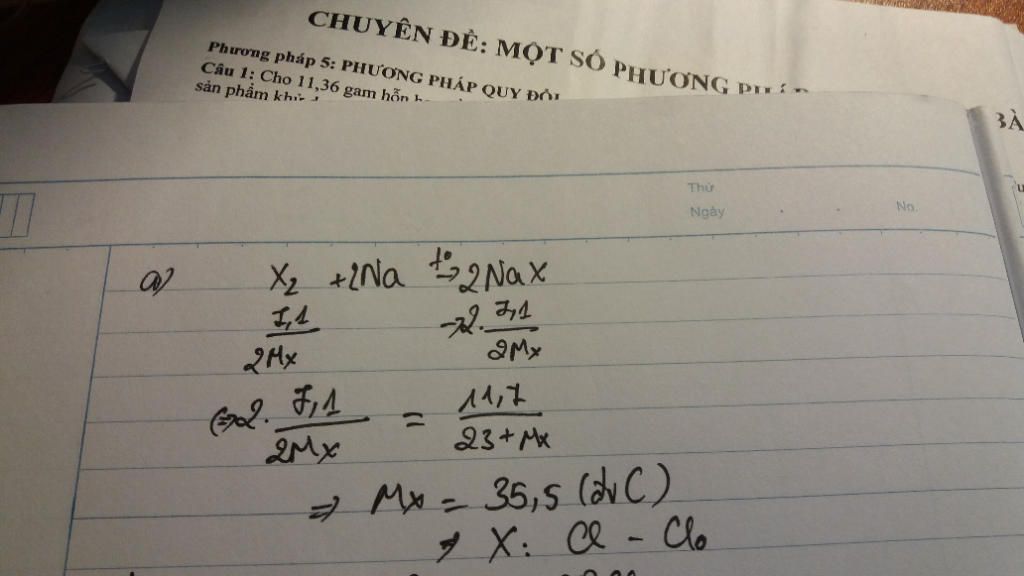 CHUYÊN ĐỀ: MỘT SỐ PHƯƠNG PHÁP
Phương pháp 5: PHƯƠNG PHÁP QUY ĐỔI
BÀ
Câu 1: Cho 11,36 gam hỗn
sản phẩm khử
Thứ
Ngày . . No.
a) X₂ + 2Na t° → 2NaX
7,1/2Mx → 2. 7,1/2Mx
(⇒ 2. 7,1/2Mx = 11,7/23 + Mx
⇒ Mx = 35,5 (đvC)
→ X: Cl - Clo